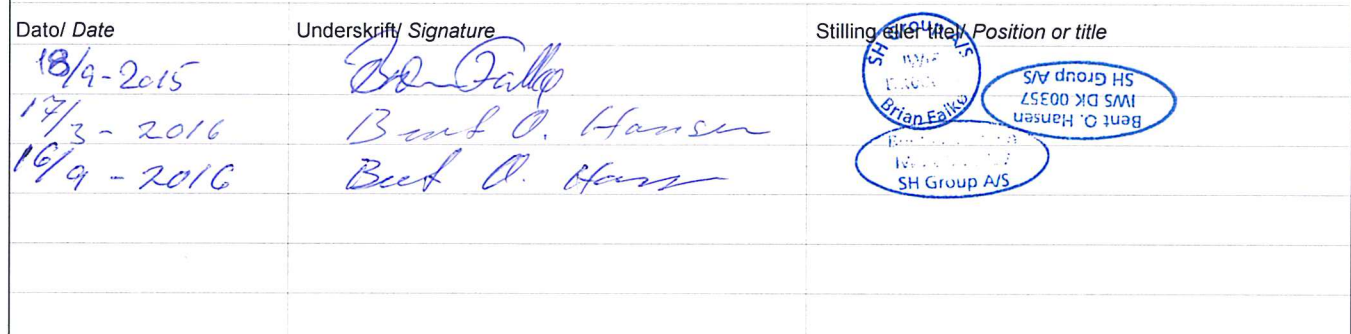 Dato/ Date Underskrift/ Signature Stilling eller titel/ Position or title
18/9-2015 Brian Falkø SH Group A/S Brian Falkø
17/3 - 2016 Bent O. Hansen Bent O. Hansen IWS DK 00357 SH Group A/S
16/9 - 2016 Bent O. Hansen SH Group A/S